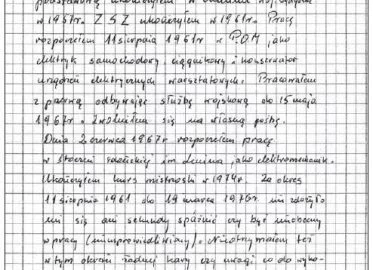 podstawową ukończyłem w
w 1957r. Z S Z ukończyłem w 1961r. Pracę
rozpocząłem 11 sierpnia 1961r w POM jako
elektryk samochodowy, ciągnikowy i konserwator
urządzeń elektrycznych warsztatowych. Pracowałem
z przerwą odbywając służbę wojskową do 15 maja
1967r. Zwolniłem się na własną prośbę.
Dnia 2 czerwca 1967r rozpocząłem pracę
w stoczni gdańskiej im Lenina, jako elektromechanik.
Ukończyłem kurs mistrzowski w 1974r. Za okres
11 sierpnia 1961 do 19 marca 1976r nie zdarzyło
mi się ani sekundy spóźnić czy być nieobecny
w pracy (nieusprawiedliwiony). Nie otrzymałem też
w tym okresie żadnej kary czy uwagi co do wyko-